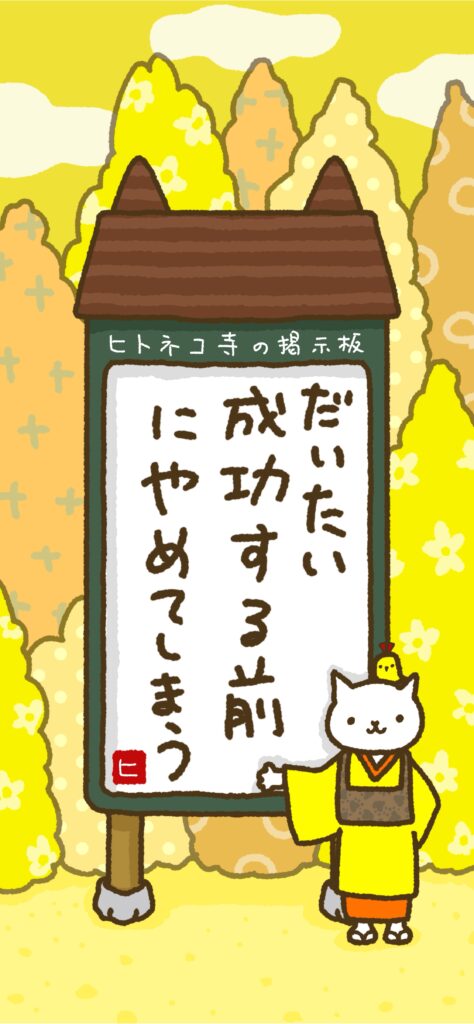 ヒトネコ寺の掲示板
だいたい
成功する前
にやめてしまう
ヒ